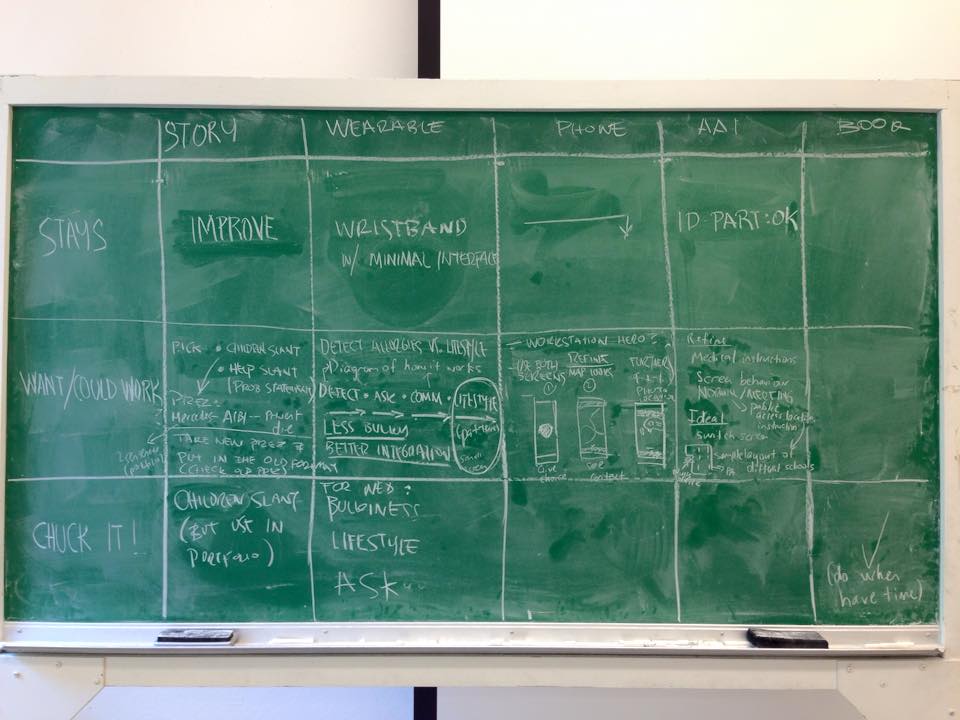 STORY WEARABLE PHONE AAI BOOK
STAYS IMPROVE WRISTBAND ID PART:OK
W/ MINIMAL INTERFACE
WANT/COULD WORK
PICK • CHILDREN SLANT
• HELP SLANT
(PROB STATEMENT)
PREZ:
die
TAKE NEW PREZ &
PUT IN THE OLD FORMAT
(CHECK OLD PREZ)
DETECT ALLERGIES VS. LIFESTYLE
Diagram of how it works
DETECT • ASK • COMM • LIFESTYLE
LESS BULKY
BETTER INTEGRATION
(patterns)
small screen
WORKSTATION HERO?
USE BOTH SCREENS
REFINE MAP LOOKS
FURTHER
①
②
Give choice
contact
Refine
Medical instructions
Screen behaviour
NORMAL/MEETING
public
access location
instruction
Ideal
switch screen
simple layout of
different schools
CHUCK IT!
CHILDREN SLANT
(BUT USE IN
PORTFOLIO)
BULKINESS
LIFESTYLE
ASK
(do when
have time)